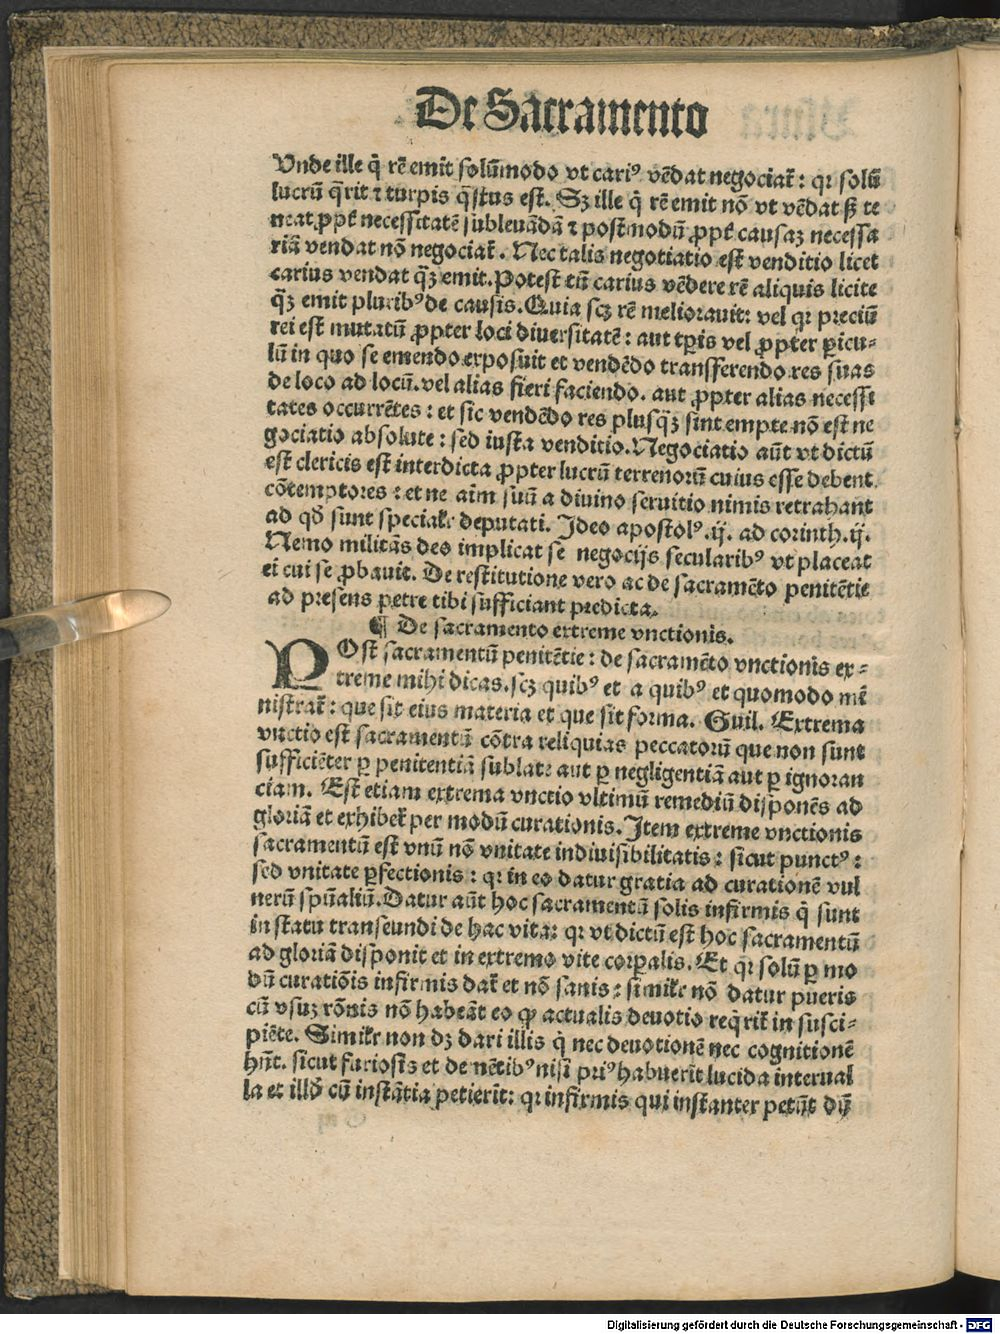 De Sacramento
Unde ille q̄ rē emit solūmodo vt cariꝰ vēdat negociat̄: qꝛ solū
lucrū q̄rit ⁊ turpis q̄stus est. Sꝫ ille q̄ rē emit nō vt vēdat sꝫ te
neat ꝓpt̄ necessitatē subleuādā ⁊ post modū ꝓpt̄ causaꝫ necessa
riā vendat nō negociat̄. Nec talis negotiatio est venditio licet
carius vendat q̄ꝫ emit. Potest tn̄ carius vēdere rē aliquis licite
q̄ꝫ emit pluribꝰ de causis. Quia scꝫ rē meliorauit: vel qꝛ preciū
rei est mutatū ꝓpter loci diuersitatē: aut tꝑis vel ꝓpter ꝑicu-
lū in quo se emendo exposuit et vendēdo transferendo res suas
de loco ad locū. vel alias fieri faciendo. aut ꝓpter alias necessi
tates occurrētes: et sic vendēdo res plusq̄ꝫ sint empte nō est ne
gociatio absolute: sed iusta venditio. Negociatio aūt vt dictū
est clericis est interdicta ꝓpter lucrū terrenorū cuius esse debent
cōtemptores: et ne aīm suū a diuino seruitio nimis retrahant
ad qd̄ sunt specialr̄ deputati. Ideo apostolꝰ .ij. ad corinth. ij.
Nemo militās deo implicat se negocijs secularibꝰ vt placeat
ei cui se ꝓbauit. De restitutione vero ac de sacramēto penitētie
ad presens petre tibi sufficiant predicta.
¶ De sacramento extreme vnctionis.
POst sacramentū penitētie: de sacramēto vnctionis ex-
treme mihi dicas. scꝫ quibꝰ et a quibꝰ et quomodo mi
nistrat̄: que sit eius materia et que sit forma. Guil. Extrema
vnctio est sacramentū cōtra reliquias peccatorū que non sunt
sufficiēter ꝑ penitentiā sublate aut ꝑ negligentiā aut ꝑ ignoran
ciam. Est etiam extrema vnctio vltimū remediū disponēs ad
gloriā et exhibet̄ per modū curationis. Item extreme vnctionis
sacramentū est vnū nō vnitate indiuisibilitatis: sicut punctꝰ:
sed vnitate ꝑfectionis: qꝛ in eo datur gratia ad curationē vul
nerū spūaliū. Datur aūt hoc sacramentū solis infirmis q̄ sunt
in statu transeundi de hac vita: qꝛ vt dictū est hoc sacramentū
ad gloriā disponit et in extremo vite corꝑalis. Et qꝛ solū ꝑ mo
dū curatiōis infirmis dat̄ et nō sanis: similr̄ nō datur pueris
cū vsuꝫ rōnis nō habeāt eo ꝙ actualis deuotio req̄rit̄ in susci-
piēte. Similr̄ non dꝫ dari illis q̄ nec deuotionē nec cognitionē
hn̄t. sicut furiosis et demētibꝰ nisi priꝰ habuerīt lucida interual
la et illd̄ cū instātia petierīt: qꝛ infirmis qui instanter petūt dū
Digitalisierung gefördert durch die Deutsche Forschungsgemeinschaft - DFG